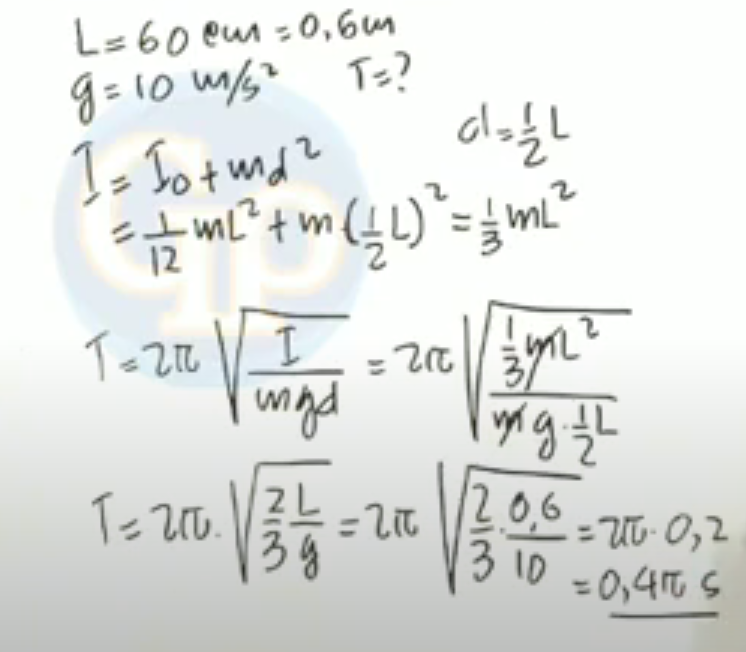 L = 60 cm = 0,6 m
g = 10 m/s² T = ?
d = ½ L
I = I₀ + md²
= 1/12 mL² + m(½ L)² = ⅓ mL²
T = 2π √(I / mgd) = 2π √(⅓ mL² / m g · ½ L)
T = 2π · √(2/3 L/g) = 2π √(2/3 · 0,6/10) = 2π · 0,2
= 0,4π s